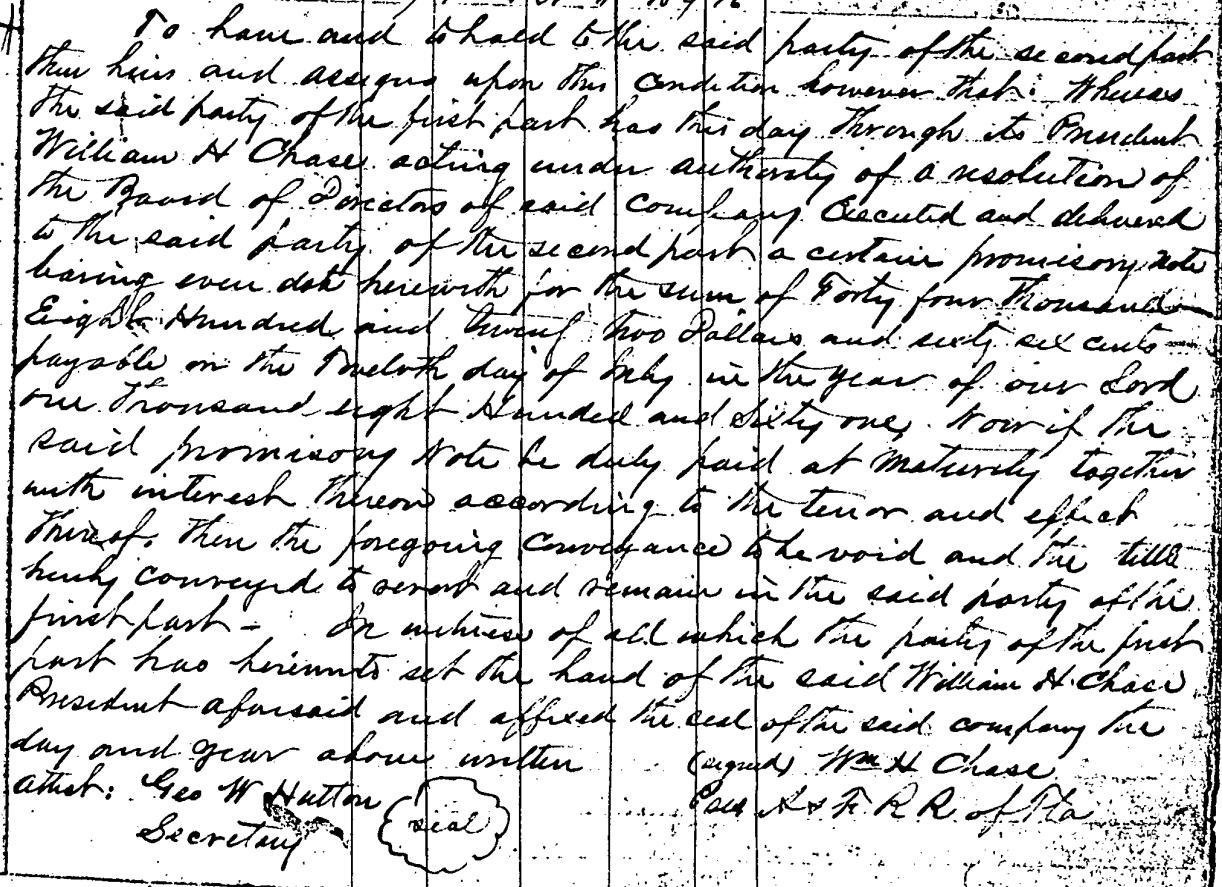 To have and to hold to the said party of the second part
their heirs and assigns upon this Condition however that: Whereas
the said party of the first part has this day through its President
William H Chase acting under authority of a resolution of
the Board of Directors of said Company Executed and delivered
to the said party of the second part a certain promisory Note
bearing even date herewith for the sum of Forty four Thousand
Eight Hundred and twenty two Dollars and sixty six cents
payable on the Twelvth day of July in the year of our Lord
one Thousand eight Hundred and Sixty one, Now if the
said promisory Note be duly paid at maturity together
with interest thereon according to the tenor and effect
thereof, then the foregoing Conveyance to be void and the title
hereby conveyed to revert and remain in the said party of the
first part - In witness of all which the party of the first
part has hereunto set the hand of the said William H Chase
President aforesaid and affixed the seal of the said company the
day and year above written (signed) Wm H Chase
attest: Geo W Hutton (seal) Pres A & F R R of Fla
Secretary